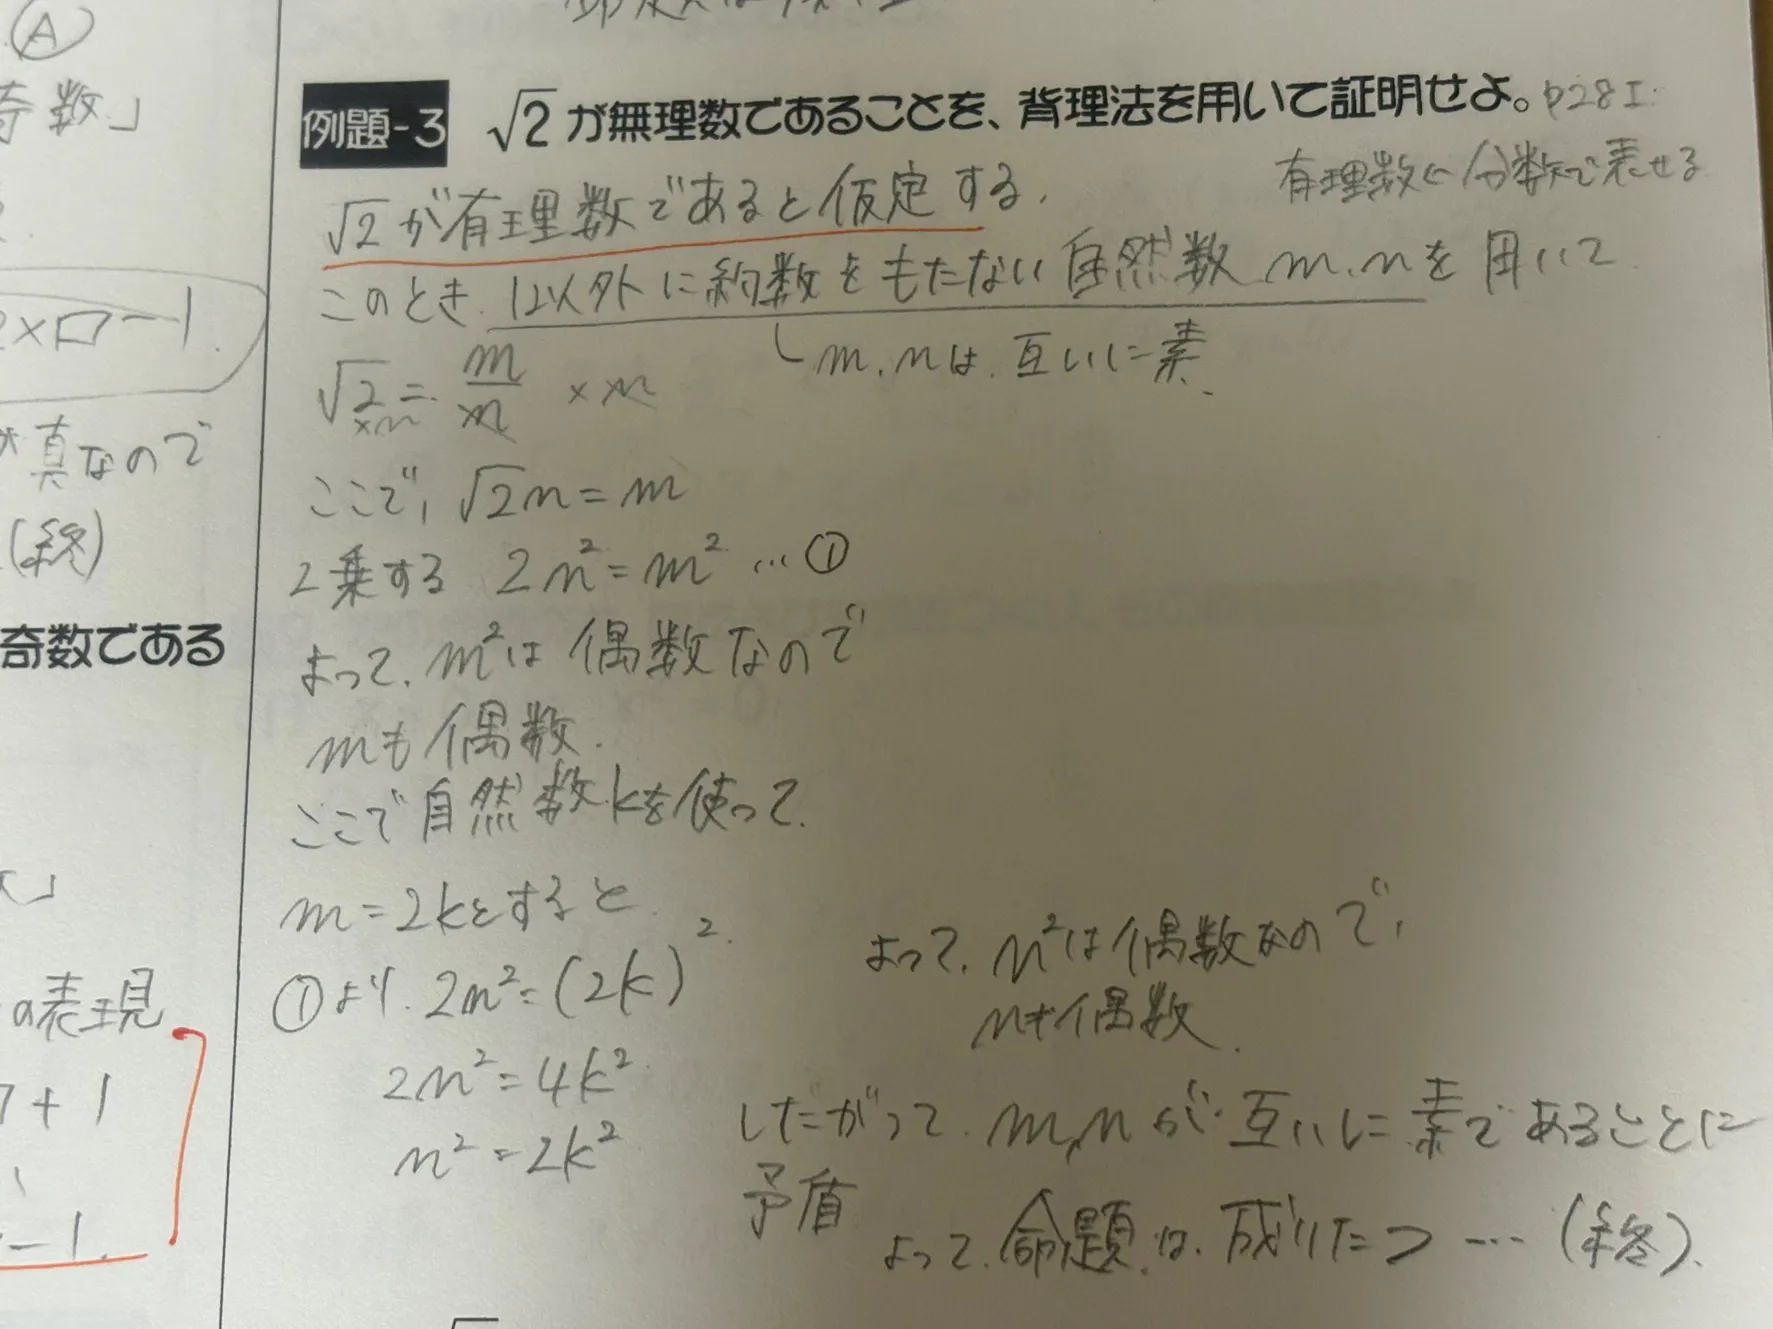 Ⓐ
奇数」
2×□-1.
真なので
(終)
奇数である
の表現
+1
-1.
例題-3 √2が無理数であることを、背理法を用いて証明せよ。P28I
有理数⇔分数で表せる
√2が有理数であると仮定する.
このとき.1以外に約数をもたない自然数m,nを用いて
m,nは.互いに素.
√2=m/n ×n
×n
ここで,√2n=m
2乗する 2n²=m²…①
よって.m²は偶数なので
mも偶数.
ここで自然数kを使って.
m=2kとすると
①より.2n²=(2k)².
2n²=4k²
n²=2k²
よって.n²は偶数なので,
nも偶数.
したがって.m,nが互いに素であることに
矛盾
よって.命題は.成りたつ…(終).